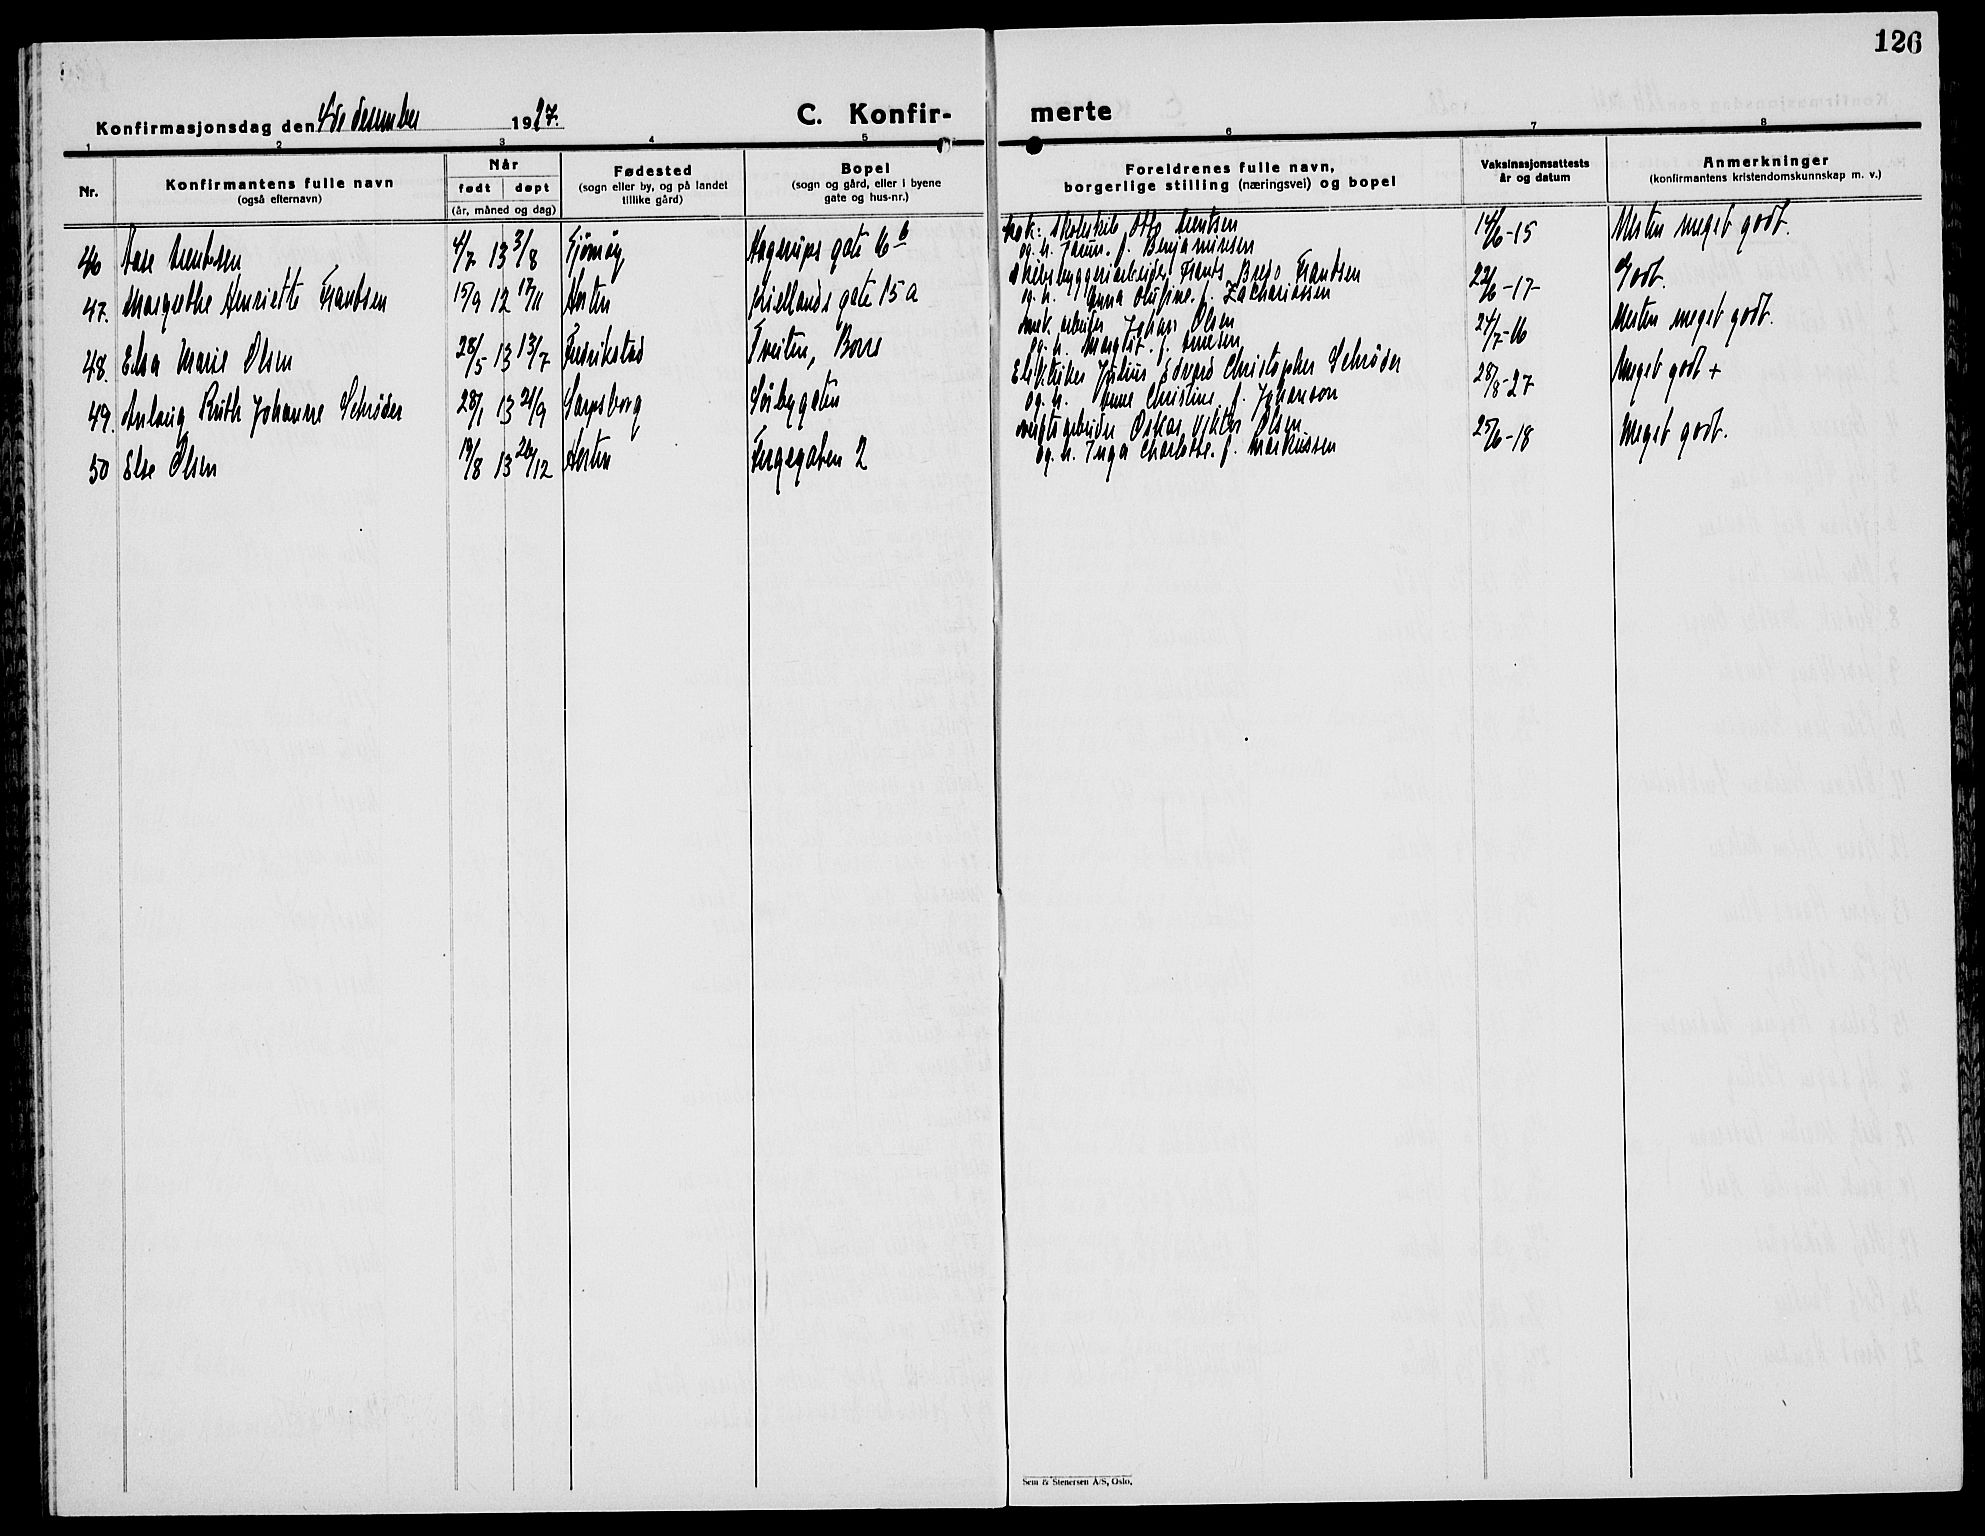 126
Konfirmasjonsdag den 4de desember 1927.
C. Konfir-
merte
1 2 3 4 5 6 7 8
Nr.
Konfirmantens fulle navn
(også efternavn)
Når
født døpt
(år, måned og dag)
Fødested
(sogn eller by, og på landet
tillike gård)
Bopel
(sogn og gård, eller i byene
gate og hus-nr.)
Foreldrenes fulle navn,
borgerlige stilling (næringsvei) og bopel
Vaksinasjonsattests
år og datum
Anmerkninger
(konfirmantens kristendomskunnskap m. v.)
46 Aase Arentsen 4/7 13 3/8 Tjömöy Hagerups gate 16 b Otto Arentsen 14/6-15 Nesten meget godt.
og h. f. Benjaminsen
47. Margrethe Henriette Frantsen 15/9 12 17/11 Horten Kiellands gate 15 a Skibsbyggeriarbeider Frants Bredo Frantsen 22/6-17- Godt.
og h. Anna Olufine f. Zachariassen
48. Elsa Marie Olsen 28/5 13 13/7 Fredrikstad Tveiten, Borre arbeider Johan Olsen 24/7-16 Nesten meget godt.
og h. Margit f. Arnesen
49. Anlaug Ruth Johanne Schrøder 28/1 13 21/9 Sarpsborg Sörbygaten Elektriker Julius Edvard Christopher Schrøder 28/8-27 Meget godt +
og h. Anne Christine f. Johanson
50 Else Olsen 19/8 13 26/12 Horten Fergegaten 2 verftsarbeider Oskar Viktor Olsen 25/6-18 Meget godt.
og h. Inga Charlotte f. Markussen
Sem & Stenersen A/S, Oslo.